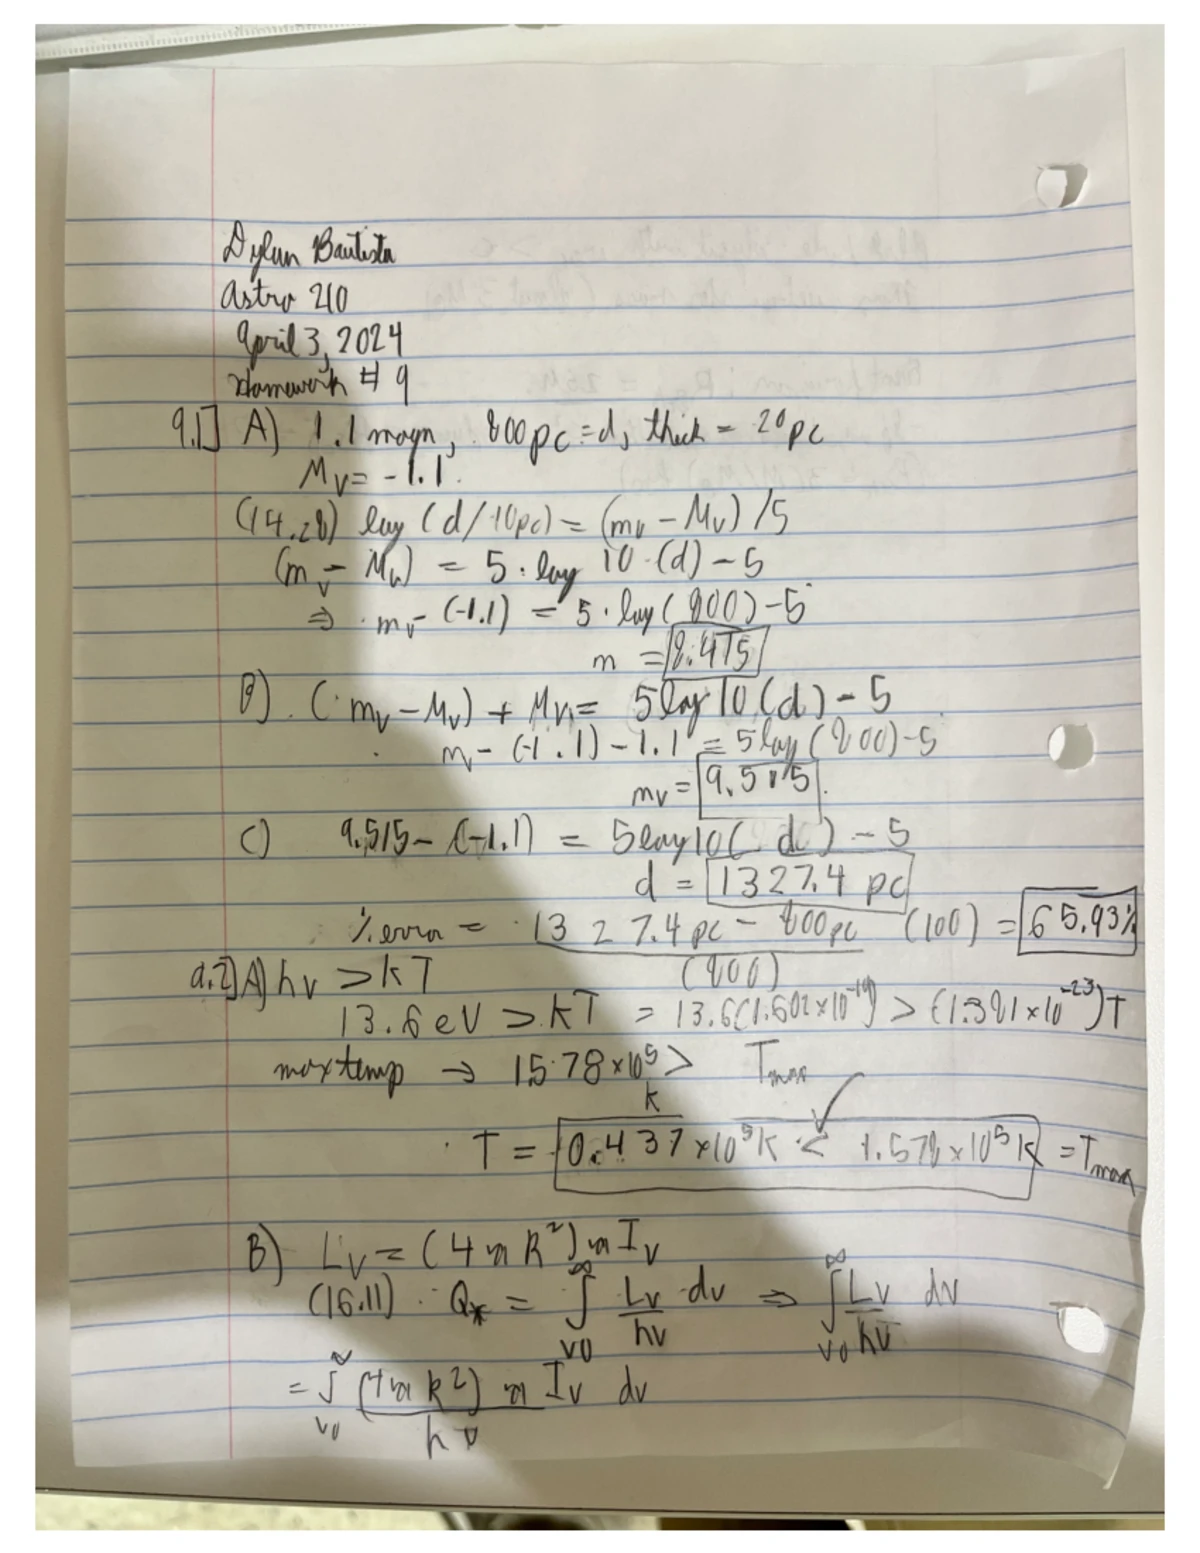 Dylan Bautista
Astro 210
April 3, 2024
Homework # 9
9.1] A) 1.1 magn, 800pc = d, thick = 20pc
Mv = -1.1
(14.28) log (d/10pc) = (mv - Mv) /5
(mv - Mv) = 5 · log 10 (d) - 5
⇒ mv - (-1.1) = 5 · log (800) - 5
m = 8.415
B) (mv - Mv) + Mv = 5 log 10 (d) - 5
m - (-1.1) - 1.1 = 5 log (800) - 5
mv = 9.515
C) 9.515 - (-1.1) = 5 log 10 ( d ) - 5
d = 1327.4 pc
% error = 1327.4 pc - 800pc (100) = 65.93%
(800)
9.2] A) hν > kT
13.6 eV > kT = 13.6(1.602×10⁻¹⁹) > (1.381×10⁻²³)T
max temp → 15.78×10⁵ > Tmax
k
T = 0.437×10⁵K < 1.578×10⁵K = Tmax
B) Lν = (4πR²)πIν
(16.11) Q* = ∫ν0^∞ Lν/hν dν ⇒ ∫ν0^∞ Lν/hν dν
= ∫ν0^∞ (4πR²)πIν/hν dν